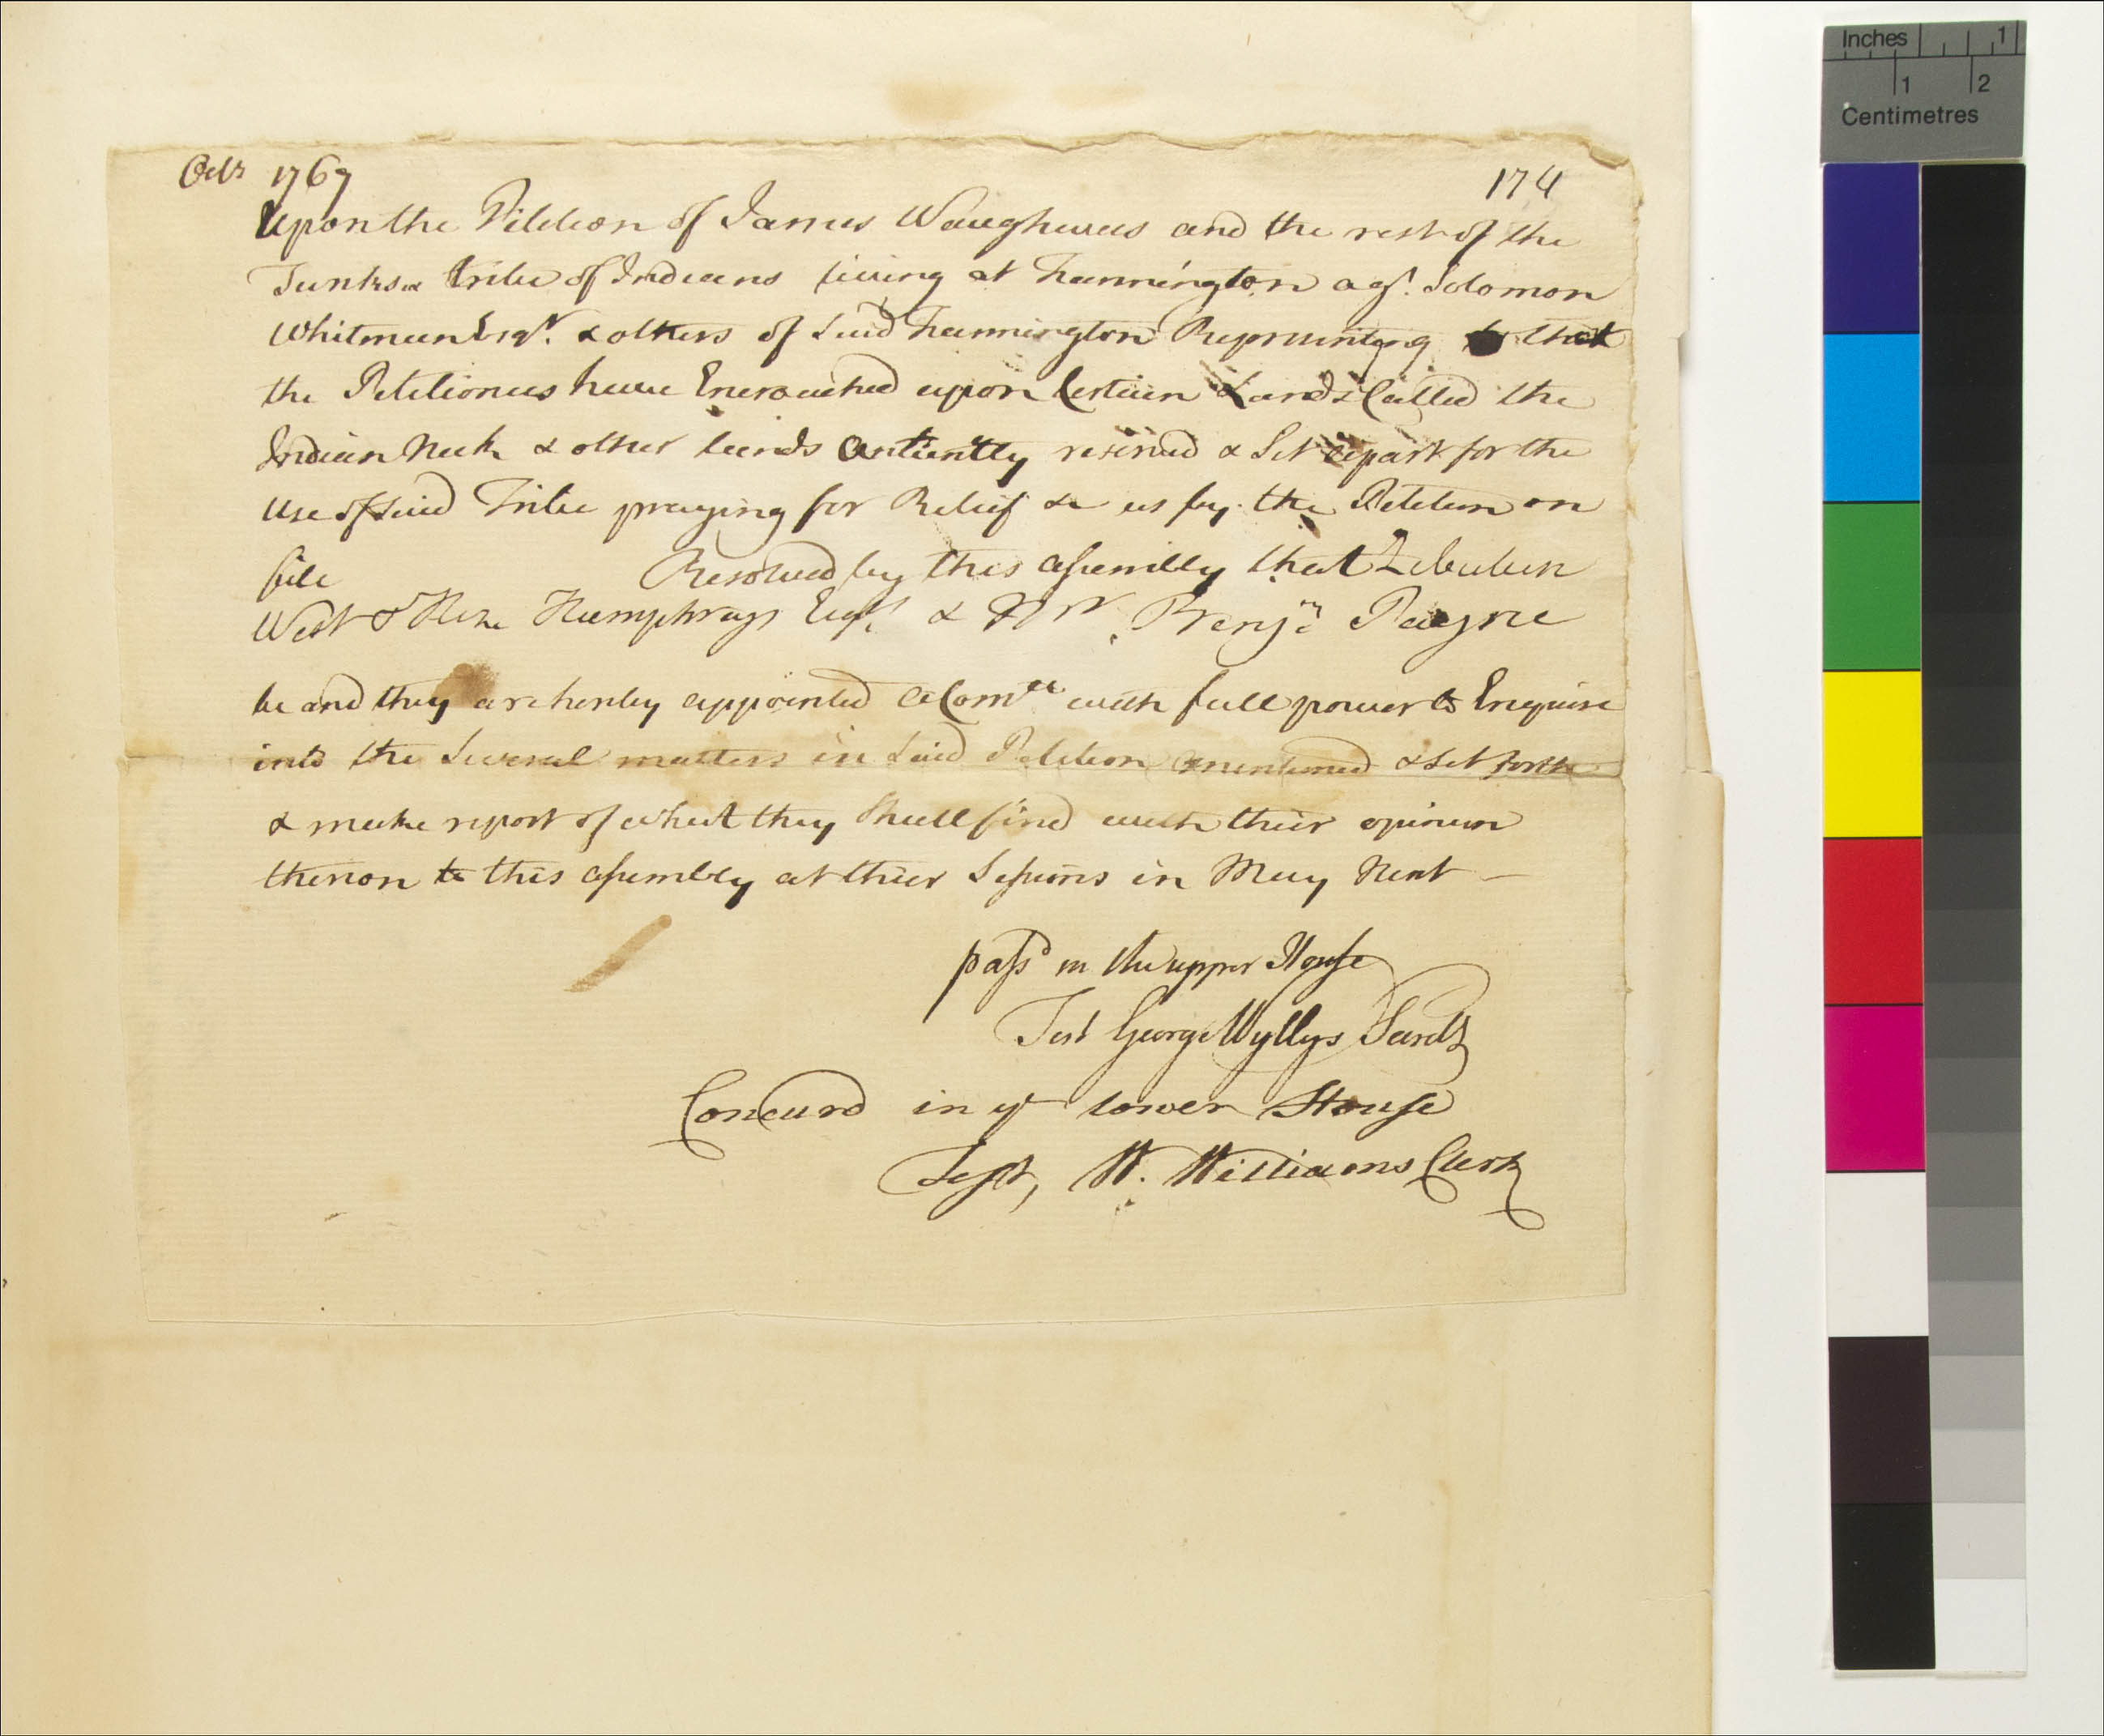 Octr 1767
174
Upon the Petition of James Waughwas and the rest of the
Tunksis tribe of Indians living at Farmington agt. Solomon
Whitman Esqr. & others of said Farmington Representing that
the Petitioners have Encroached upon Certain Lands Called the
Indian Neck & other lands Antiently reserved & Set apart for the
use of said Tribe praying for Relief &c as by the Petition on
file Resolved by this Assembly that Zebulun
West & Heze Humphrays Esqrs. & Mr. Benjn Payne
be and they are hereby appointed a Comtee with full power to Enquire
into the Several matters in said Petition mentioned & Set forth
& make report of what they Shall find with their opinion
thereon to this Assembly at their Sessions in May Next —
passd in the upper House
Test George Wyllys Secretr
Concurd in ye Lower House
Test, W. Williams Clerk
Inches 1
1 2
Centimetres